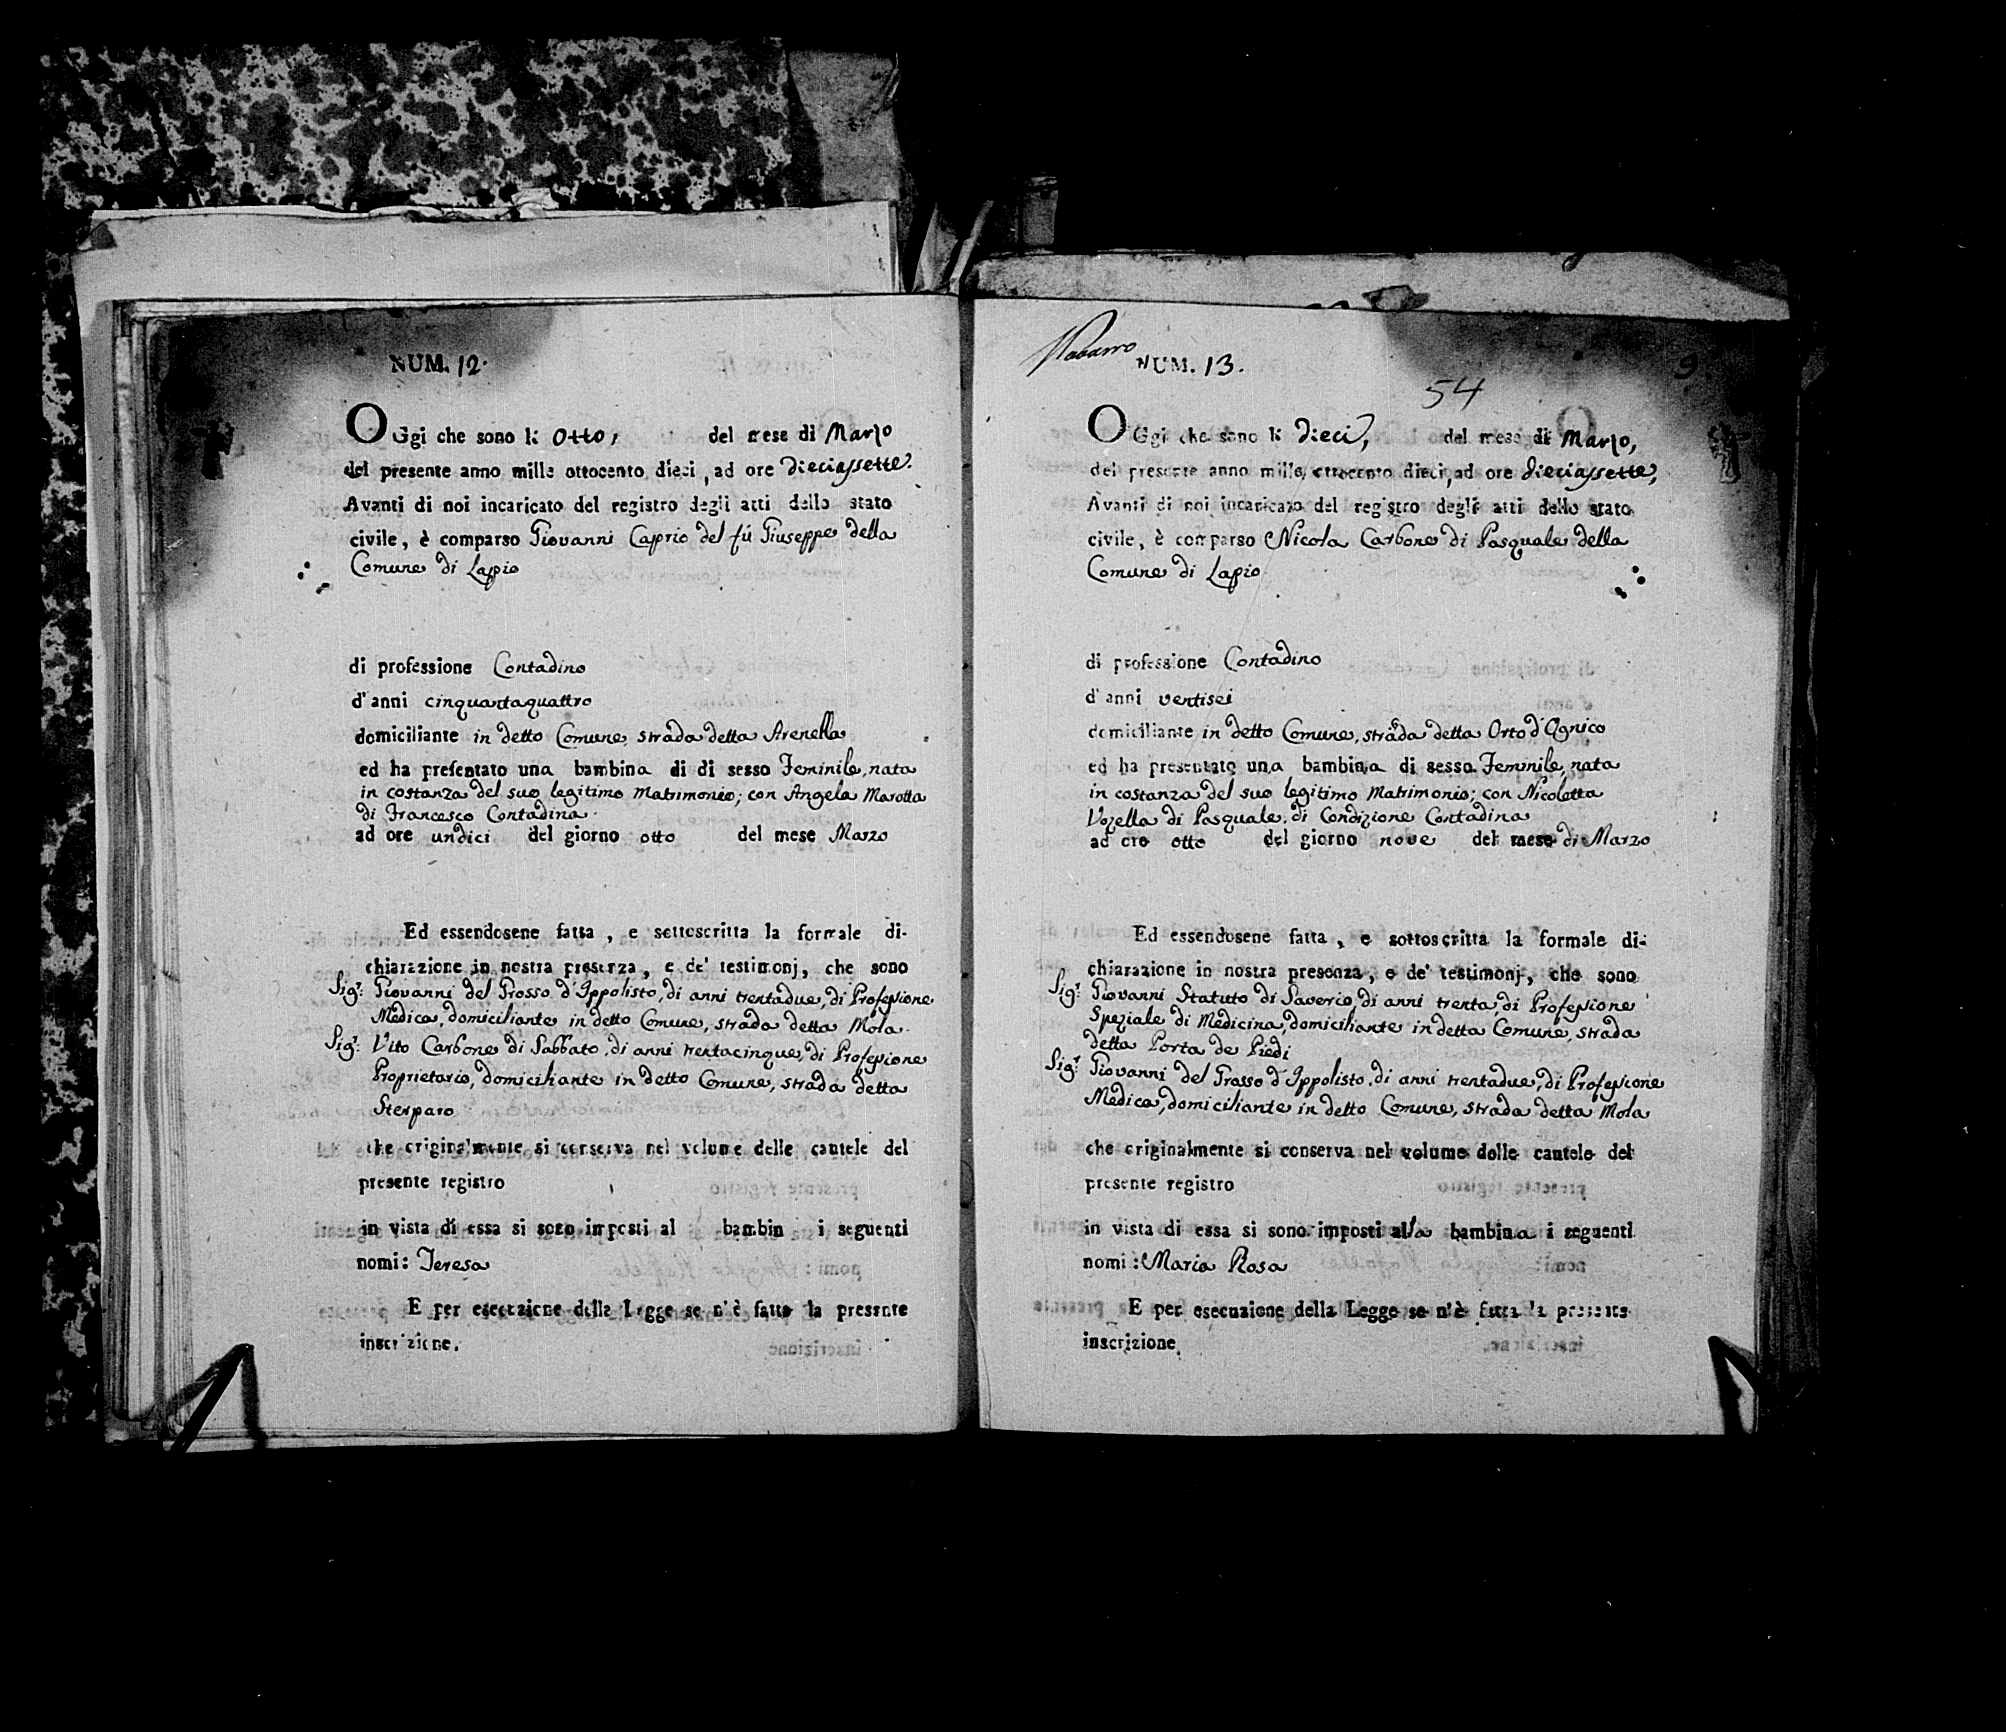 NUM. 12.
OGgi che sono li Otto, del mese di Marzo
del presente anno mille ottocento dieci, ad ore dieciassette.
Avanti di noi incaricato del registro degli atti dello stato
civile, è comparso Giovanni Caprio del fù Giuseppe della
Comune di Lapio
di professione Contadino
d'anni cinquantaquattro
domiciliante in detto Comune, strada detta Arenella
ed ha presentato una bambina di di sesso Feminile, nata
in costanza del suo legitimo Matrimonio; con Angela Marotta
di Francesco Contadina
ad ore undici del giorno otto del mese Marzo
Ed essendosene fatta, e sottoscritta la formale di-
chiarazione in nostra presenza, e de' testimonj, che sono
Sigr: Giovanni del Grosso d'Ippolisto, di anni trentadue, di Professione
Medica, domiciliante in detto Comune, strada detta Mola.
Sigr: Vito Carbone di Sabbato, di anni trentacinque, di Professione
Proprietario, domiciliante in detto Comune, strada detta
Sterparo
che originalmente si conserva nel volume delle cautele del
presente registro
in vista di essa si sono imposti al bambin i seguenti
nomi: Teresa
E per esecuzione della Legge se n'è fatta la presente
inscrizione.
NUM. 13.
54
9
OGgi che sono li dieci, del mese di Marzo,
del presente anno mille ottocento dieci, ad ore dieciassette,
Avanti di noi incaricato del registro degli atti dello stato
civile, è comparso Nicola Carbone di Pasquale della
Comune di Lapio
di professione Contadino
d'anni ventisei
domiciliante in detto Comune, strada detta Orto d'Agnico
ed ha presentato una bambina di sesso Feminile, nata
in costanza del suo legitimo Matrimonio; con Nicoletta
Vozella di Pasquale, di Condizione Contadina
ad ore otto del giorno nove del mese di Marzo
Ed essendosene fatta, e sottoscritta la formale di-
chiarazione in nostra presenza, e de' testimonj, che sono
Sigr: Giovanni Statuto di Saverio, di anni trenta, di Professione
Speziale di Medicina, domiciliante in detta Comune, strada
detta Porta de Piedi
Sigr: Giovanni del Grosso d'Ippolisto, di anni trentadue, di Professione
Medica, domiciliante in detto Comune, strada detta Mola
che originalmente si conserva nel volume delle cautele del
presente registro
in vista di essa si sono imposti alla bambina i seguenti
nomi: Maria Rosa
E per esecuzione della Legge se n'è fatta la presente
inscrizione